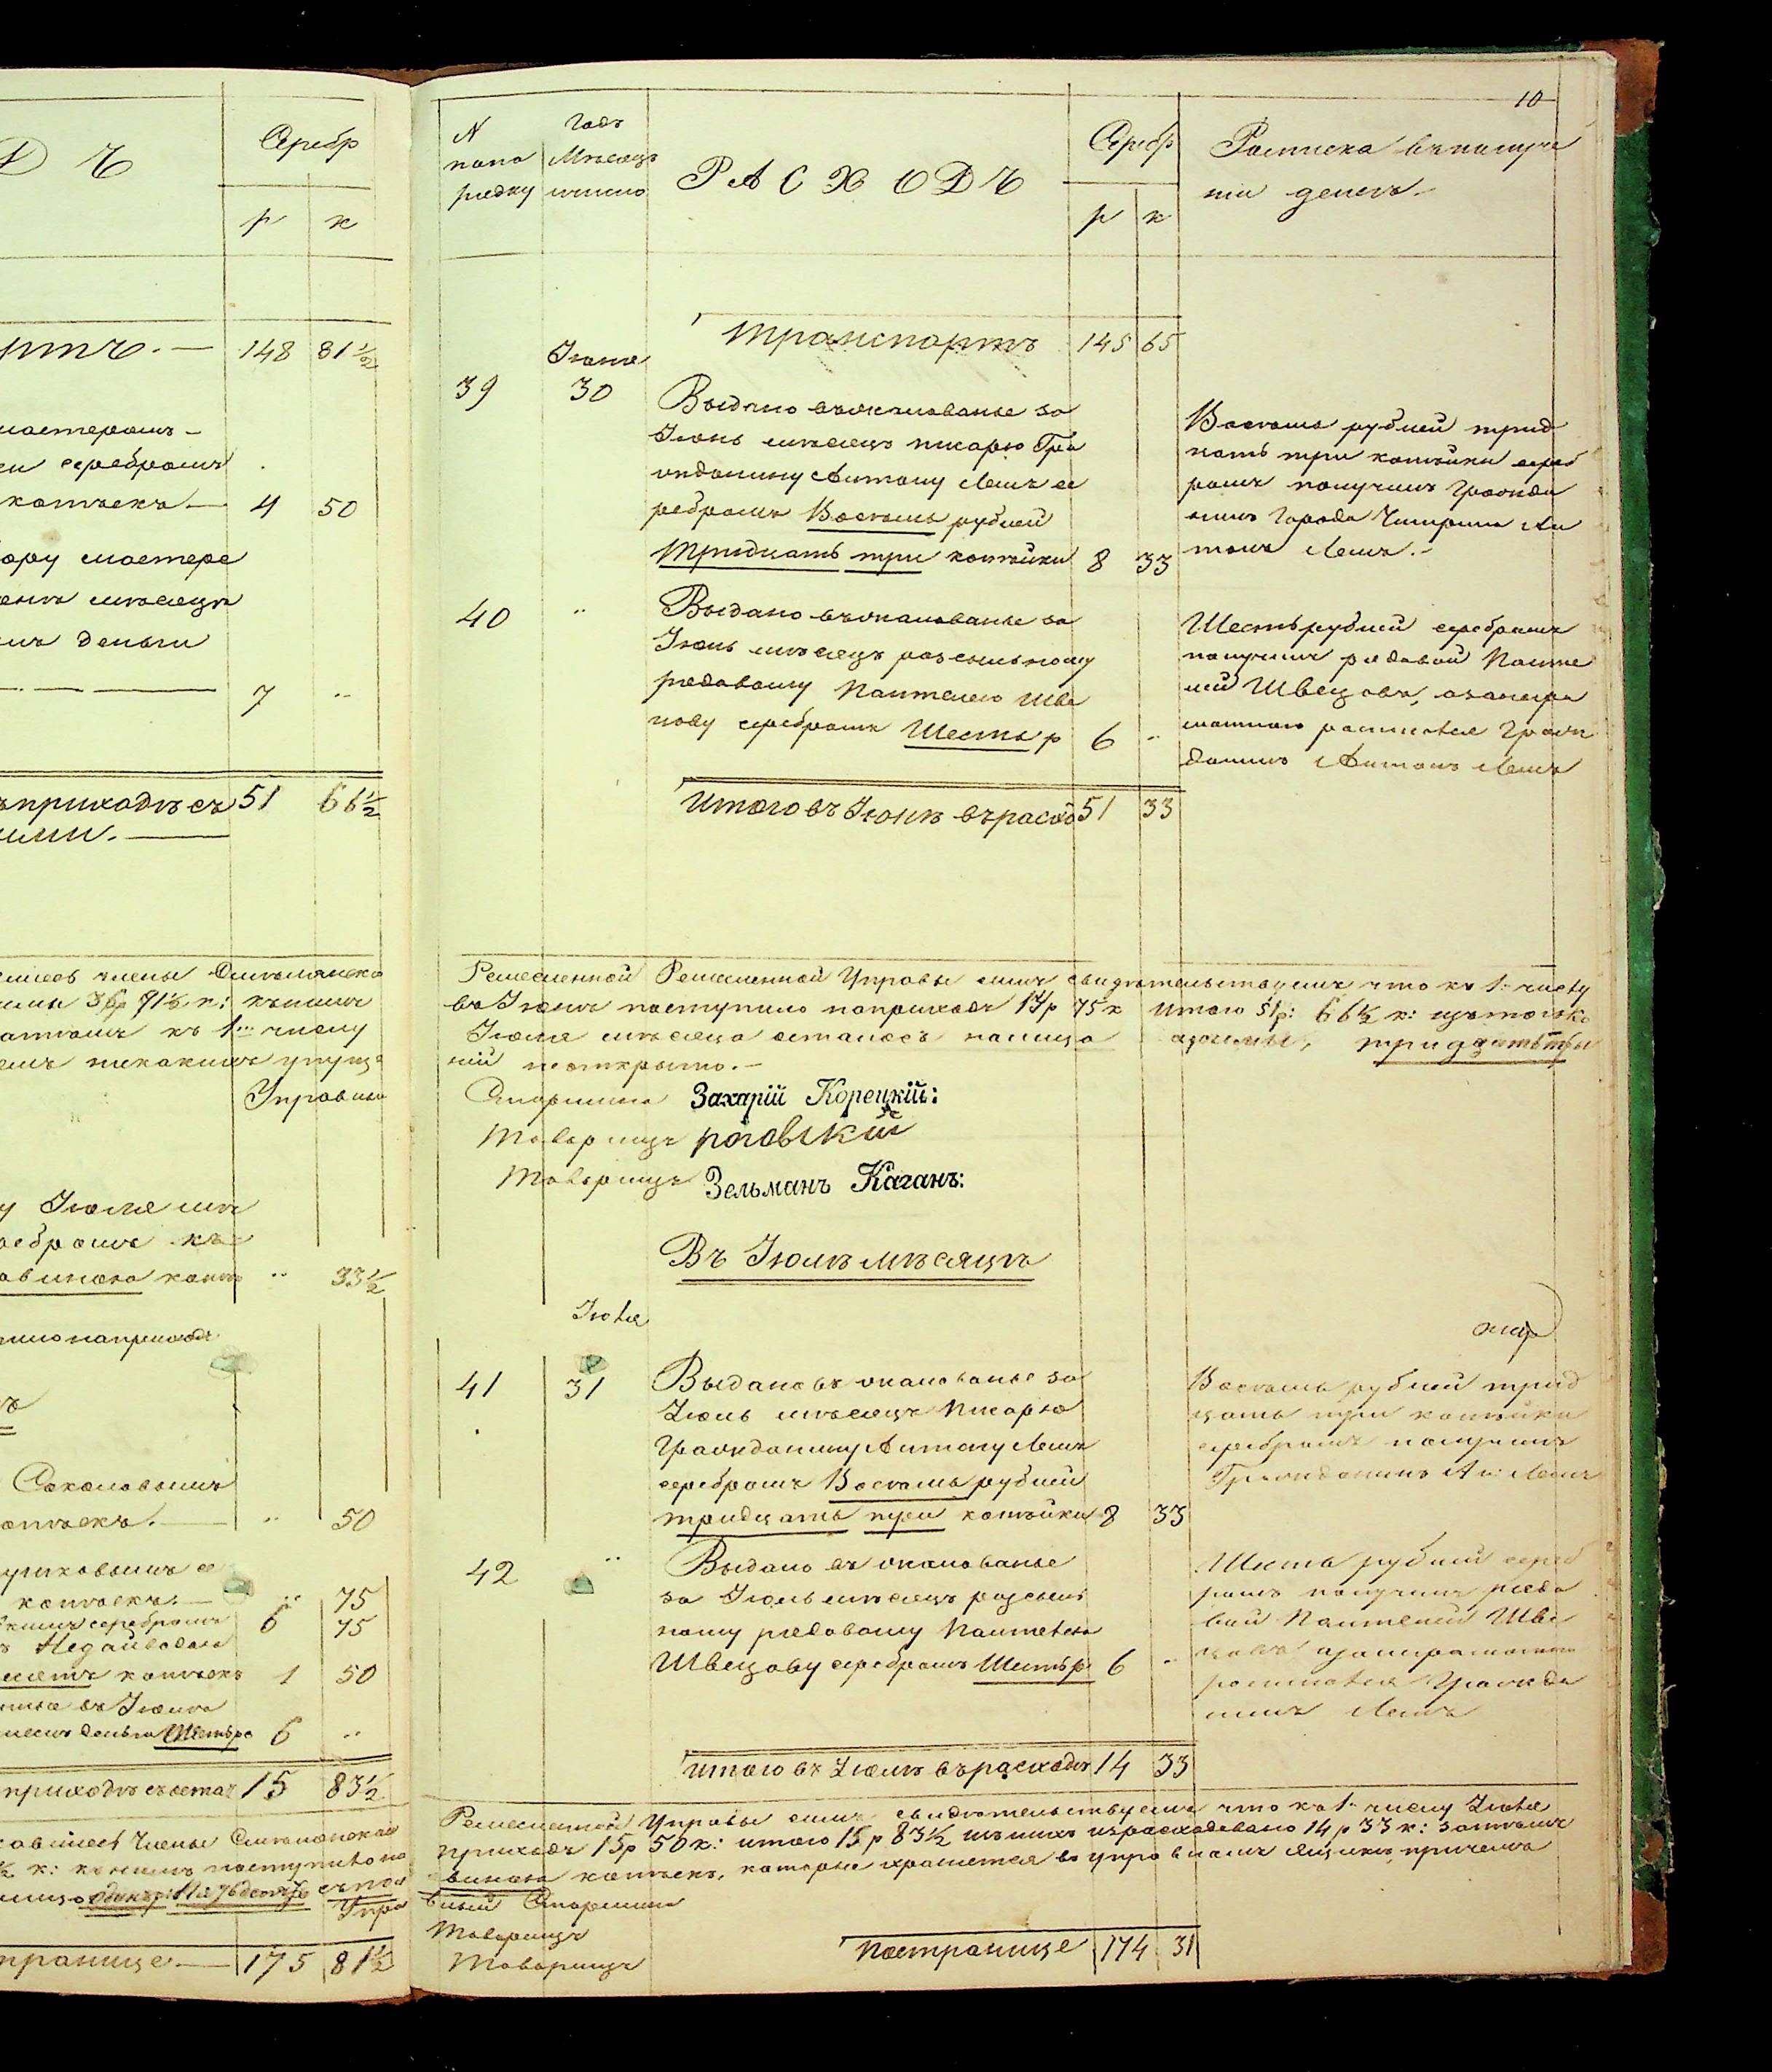 Д Ъ
Серебр
р к
ртъ. — 148 81 ½
мастерамъ —
серебромъ
копѣекъ — 4 50
ору мастере
мѣсяцъ
деньги
7 "
ъ приходѣ съ 51 66 ½
ими. —
члены Смѣлянско
къ 1му числу
никакихъ упуще
Управны
Іюля мѣ
ребромъ къ
" 33 ½
ило на приходъ
Соколовымъ
копѣекъ. — " 50
копѣекъ. — " 75
серебромъ 6 75
копѣекъ 1 50
деньги Шесть ру 6 "
приходѣ съ оста 15 83 ½
члены Смѣлянской
к: къ нимъ поступило на
Упра
транице — 175 81 ½
10
N попо рядку
Годъ Мѣсяцъ и число
РАСХОДЪ
Серебр
р к
Росписка въ получе
ніи денегъ. —
Транспортъ 145 65
Іюня
39 30 Выдано въ жалованье за
Іюнь мѣсяцъ писарю Гра
жданину Антону Лешъ се
ребромъ Восемь рублей
тридцать три копѣйки 8 33
Восемь рублей трид
цать три копѣйки сереб
ромъ получилъ Гражда
нинъ Города Чигрина Ан
тонъ Лешъ. —
40 " Выдано въ жалованье за
Іюнь мѣсяцъ розсыльному
рядовому Пантелею Шве
цову серебромъ Шесть р 6 "
Шесть рублей серебромъ
получилъ рядовой Панте
лей Швецовъ, а за негра
мотнаго росписался Граж
данинъ Антонъ Лешъ
Итого въ Іюнѣ въ расхо 51 33
Ремесленной Ремесленной Управы симъ свидѣтельствуемъ что къ 1. числу
въ Іюнѣ поступило на приходъ 17р 75 к Итого 51р: 66 ½ к:
Іюля мѣсяца осталось на лицо тридцать три
ній не открыто. —
Старшина Захарій Корецкій:
Товарищъ Роговскій
Товарищъ Зельманъ Каганъ:
Въ Іюлѣ мѣсяцѣ
Іюля
41 31 Выдано въ жалованье за
Іюль мѣсяцъ Писарю
Гражданину Антону Лешъ
серебромъ Восемь рублей
тридцать три копѣйки 8 33
Восемь рублей трид
цать три копѣйки
серебромъ получилъ
Гражданинъ Ан: Лешъ
42 " Выдано въ жалованье
за Іюль мѣсяцъ розсыль
ному рядовому Пантелею
Швецову серебромъ Шесть р 6 "
Шесть рублей сереб
ромъ получилъ рядо
вой Пантелей Шве
цовъ а за неграмотн
росписался Гражда
нинъ Лешъ
Итого въ Іюлѣ въ расходѣ 14 33
Ремесленной Управы симъ свидѣтельствуемъ что къ 1. числу Іюля
приходъ 15р 50 к: итого 15 р 83 ½ изъ нихъ израсходовано 14 р 33 к: затѣмъ
виною копѣекъ, которые хранятся въ управномъ ящикѣ, причемъ
вный Старшина
Товарищъ
Товарищъ
По странице 174 31